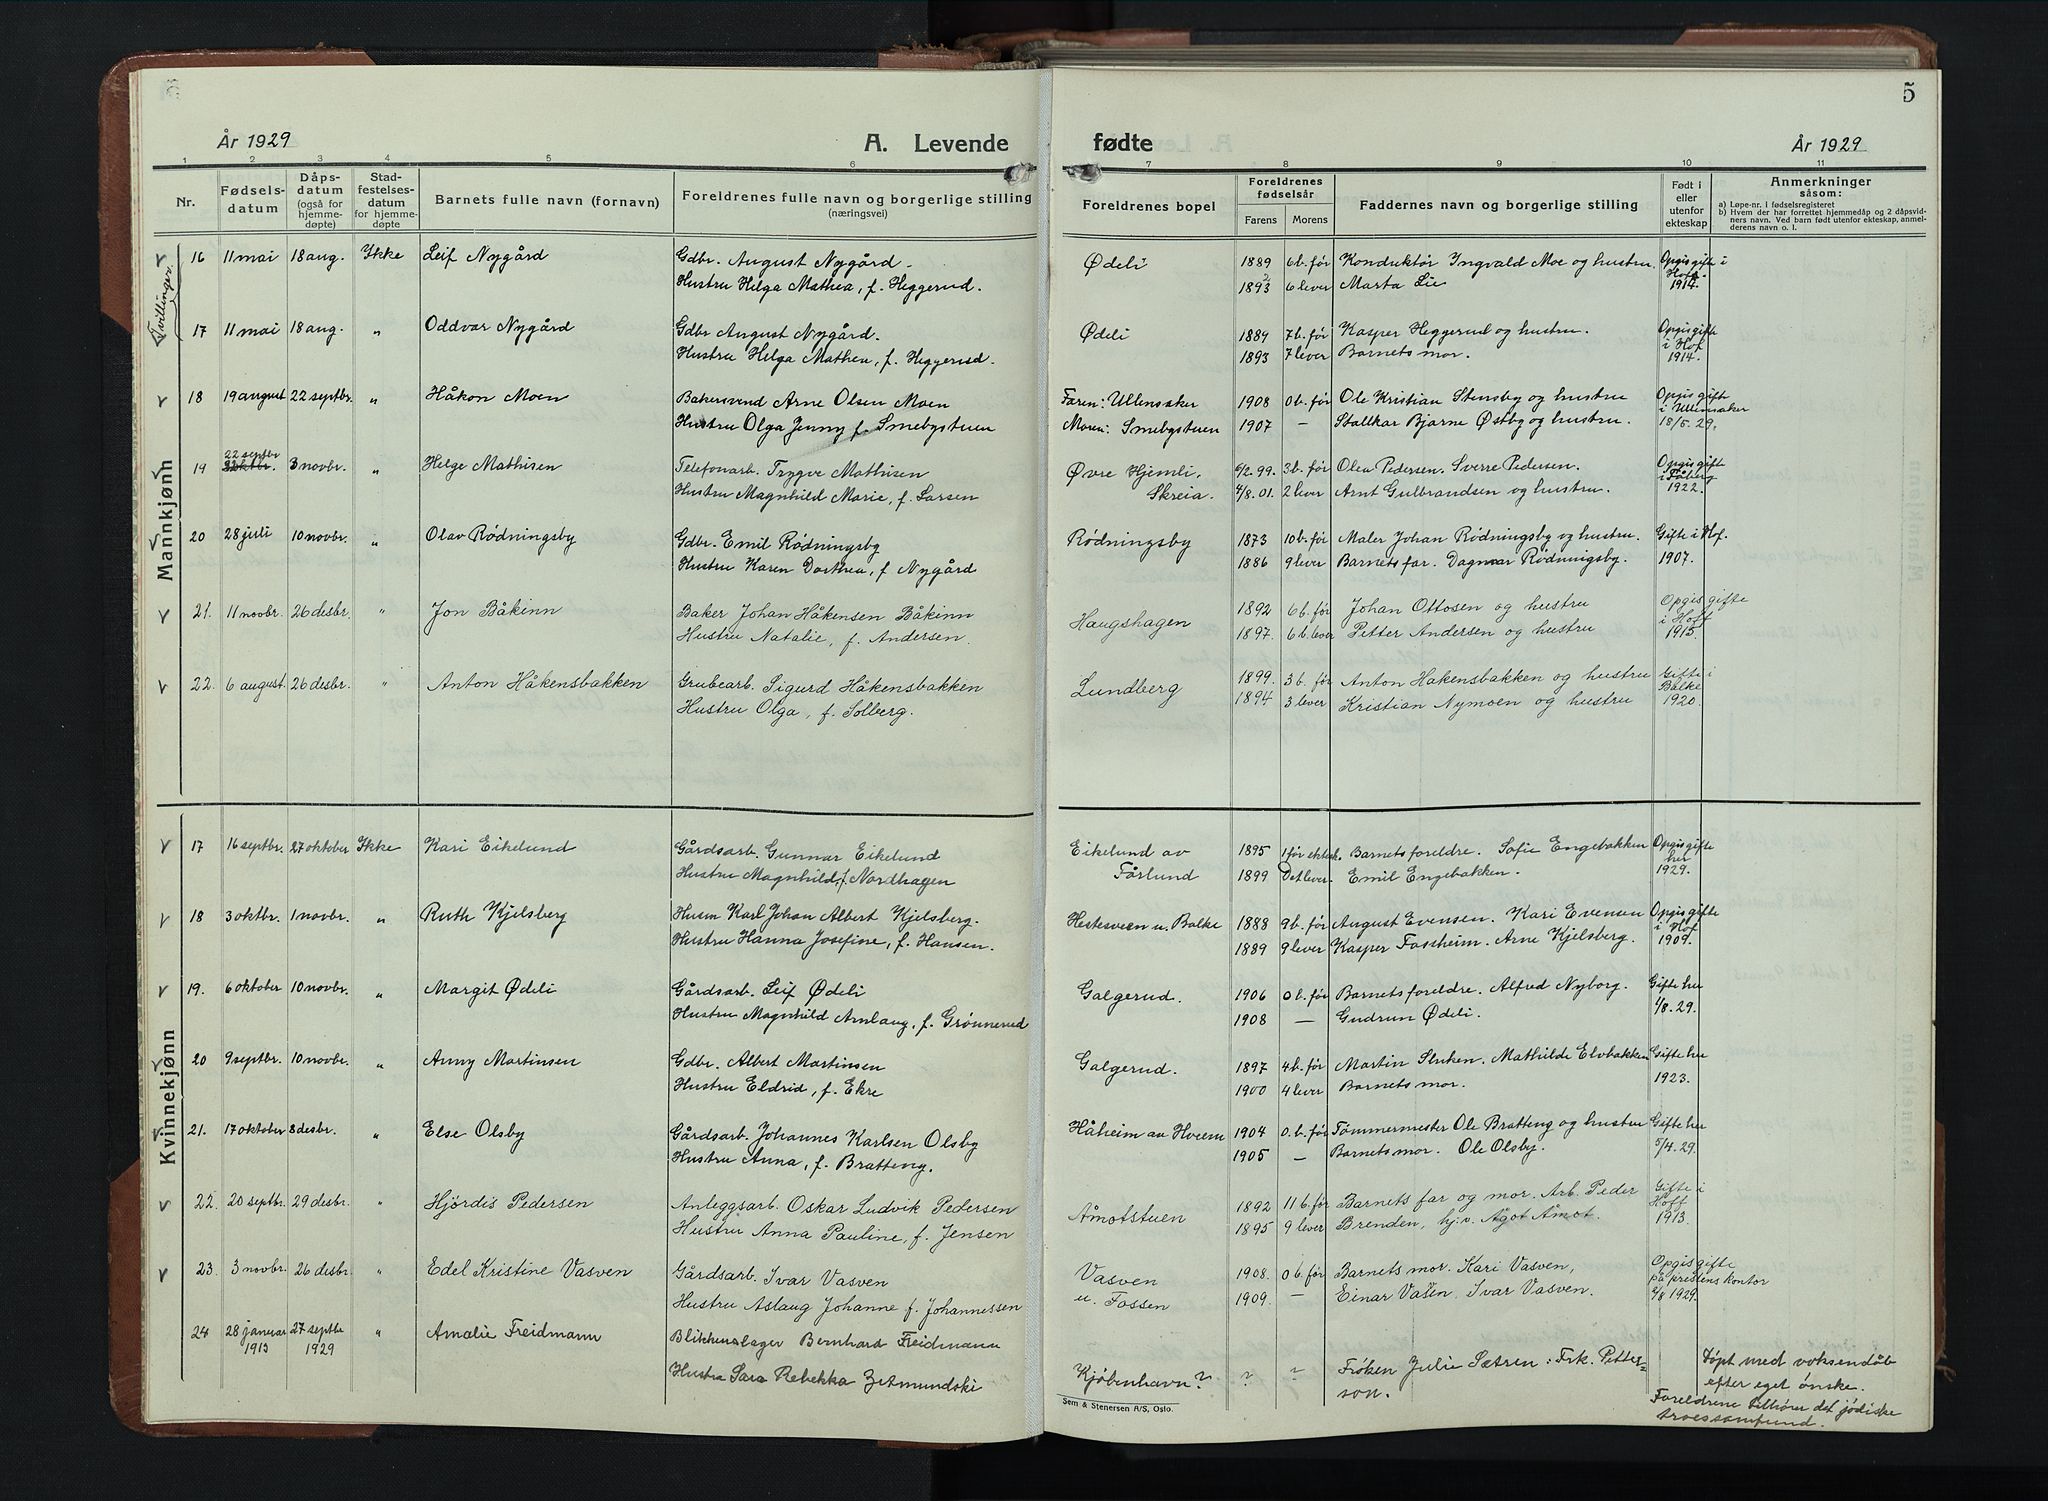 5
År 1929
A. Levende
fødte
År 1929
1 2 3 4 5 6 7 8 9 10 11
Nr.
Fødsels-
datum
Dåps-
datum
(også for
hjemme-
døpte)
Stad-
festelses-
datum
for hjemme-
døpte
Barnets fulle navn (fornavn)
Foreldrenes fulle navn og borgerlige stilling
(næringsvei)
Foreldrenes bopel
Foreldrenes
fødselsår
Farens Morens
Faddernes navn og borgerlige stilling
Født i
eller
utenfor
ekteskap
Anmerkninger
såsom:
a) Løpe-nr. i fødselsregisteret
b) Hvem der har forrettet hjemmedåp og 2 dåpsvid-
ners navn. Ved barn født utenfor ekteskap, anmel-
derens navn o. l.
Mannkjønn
Tvillinger
16 11 mai 18 aug. Ikke Leif Nygård Gdbr. August Nygård. Ødeli 1889 6 b. før Konduktør Ingvald Moe og hustru. Opgis gifte i
Hustru Helga Mathea, f. Heggerud. 1893 6 lever Marta Lie Hof
1914.
17 11 mai 18 aug. " Oddvar Nygård Gdbr August Nygård. Ødeli 1884 7 b. før Kasper Heggerud og hustru. Opgis gifte
Hustru Helga Mathea, f. Heggerud. 1893 7 lever Barnets mor. i Hof
1914.
18 19 august 22 septbr. " Håkon Moen Bakersvend Arne Olsen Moen Faren: Ullensaker 1908 0 b. før Ole Kristian Stensby og hustru Opgis gifte
Hustru Olga Jenny f. Smebystuen Moren: Smebystuen 1907 — Stallkar Bjarne Østby og hustru. i Ullensaker
18/5. 29.
19 22 septbr 3 novbr. " Helge Mathisen Telefonarb. Trygve Mathisen Øvre Hjemli, 6/2. 99. 3 b. før Olea Pedersen. Sverre Pedersen. Opgis gifte
Hustru Magnhild Marie, f. Larsen Skreia. 4/8. 01. 2 lever Arnt Gulbrandsen og hustru. i Fåberg
1922.
20 28 juli 10 novbr. " Olav Rødningsby Gdbr. Emil Rødningsby Rødningsby 1873 10 b. før Maler Johan Rødningsby og hustru. Gifte i Hof.
Hustru Karen Dorthea, f. Nygård 1886 9 lever Barnets far. Dagmar Rødningsby. 1907.
21. 11 novbr. 26 desbr. " Jon Båkinn Baker Johan Håkensen Båkinn Haugshagen 1892 6 b. før Johan Ottosen og hustru Opgis gifte
Hustru Natalie, f. Andersen. 1897. 6 b. lever Petter Andersen og hustru i Hoff
1915.
22. 6 august. 26 desbr. " Anton Håkensbakken Grubearb. Sigurd Håkensbakken Lundberg 1899. 3 b. før Anton Håkensbakken og hustru Gifte i
Hustru Olga, f. Solberg. 1894 3 lever Kristian Nymoen og hustru Balke
1920.
Kvinnekjønn
17 16 septbr. 27 oktober Ikke Kari Eikelund Gårdsarb. Gunnar Eikelund Eikelund av 1895 1 før ektesk. Barnets foreldre. Sofie Engebakken Opgis gifte
Hustru Magnhild, f. Nordhagen Fårlund 1899 Det lever. Emil Engebakken. her
1929.
18 3 oktbr. 1 novbr. " Ruth Kjelsberg Husm Karl Johan Albert Kjelsberg. Hestesveen u. Balke 1888 9 b. før August Evensen. Kari Evensen Opgis gifte
Hustru Hanna Josefine, f. Hansen. 1889 9 lever Kasper Faseheim. Arne Kjelsberg. i Hof
1909.
19. 6 oktober 10 novbr. " Margit Ødeli Gårdsarb. Leif Ødeli Galgerud. 1906 0 b. før Barnets foreldre. Alfred Nyborg. Gifte her
Hustru Magnhild Arnlaug, f. Grønnerud 1908 — Gudrun Ødeli. 1/8. 29.
20 9 septbr. 10 novbr. " Anny Martinsen Gdbr. Albert Martinsen Galgerud. 1897 4 b. før Martin Sluken. Mathilde Elvbakken Gifte her
Hustru Eldrid, f. Ekre 1900 4 lever Barnets mor. 1923.
21. 17 oktober 8 desbr. " Else Olsby Gårdsarb. Johannes Karlsen Olsby Håheim av Hveem 1904 0. b. før Tømmermester Ole Bratteng og hustru Gifte her
Hustru Anna, f. Bratteng. 1905 — Barnets mor. Ole Olsby. 5/4. 29.
22. 20 septbr. 29 desbr. " Hjørdis Pedersen Anleggsarb. Oskar Ludvik Pedersen Åmotstuen 1892 11 b. før Barnets far og mor. Arb. Peder Gifte i
Hustru Anna Pauline, f. Jensen 1895 9 lever Brenden, hj.v. Ågot Åmot. Hoff
1913.
23. 3 novbr. 26 desbr. " Edel Kristine Vasven Gårdsarb. Ivar Vasven Vasven 1908. 0 b. før Barnets mor. Kari Vasven, Opgis gifte
Hustru Aslaug Johanne f. Johannessen u. Fossen 1909. — Einar Vasven, Ivar Vasven. på prestens kontor
1929.
24 28 januar 27 septbr " Amalie Freidmann Blikkenslager Bernhard Freidmann
1913 1929
Hustru Sara Rebekka Zitmundski Kjøbenhavn? ? ? Frøken Julie Sætren: Frk. Petter=
son.
Døpt med voksendåb
efter eget ønske.
Foreldrene tilhører det jødiske
troessamfund.
Sem & Stenersen A/S, Oslo.